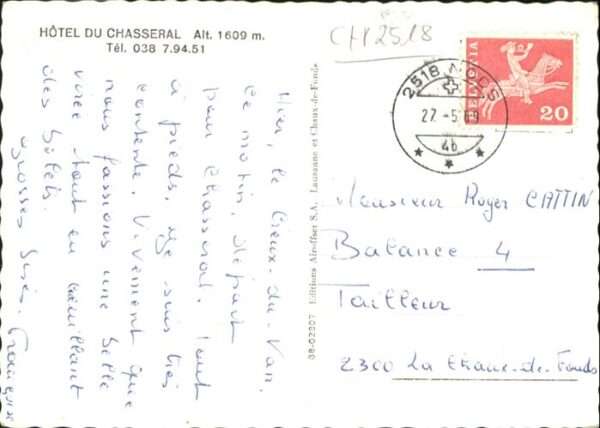 HÔTEL DU CHASSERAL Alt. 1609 m.
Tél. 038 7.94.51
Hier, le Creux-du-Van,
ce matin, départ
pour Chasseral. Tout
à pieds. Je suis très
contente. Vivement que
nous fassions une belle
virée tout en cueillant
des
Grosses bises.
08-02307 Editions Air-offset S.A., Lausanne et Chaux-de-Fonds
CH 2518
2518 NODS
27.-5.
4b
HELVETIA
20
Monsieur Roger CATTIN
Balance 4
Tailleur
2300 La Chaux-de-Fonds